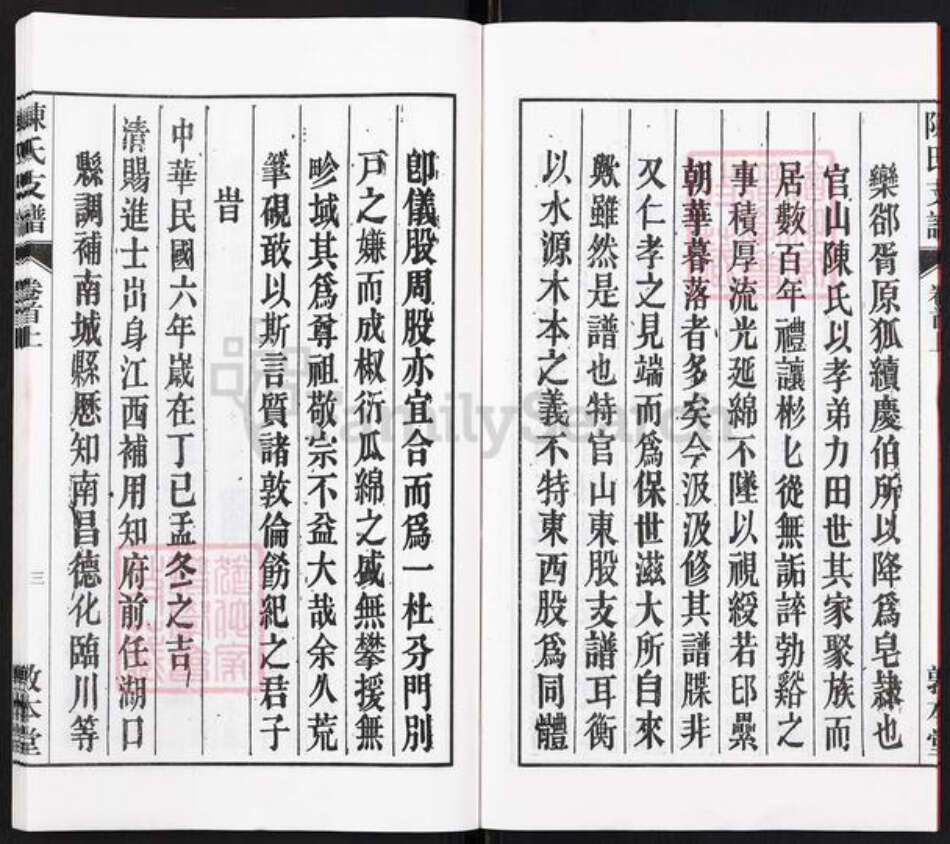 欒郤胥原狐續慶伯所以降爲皂隸也
官山陳氏以孝弟力田世其家聚族而
居數百年禮讓彬匕從無詬誶勃谿之
事積厚流光延綿不墜以視綬若印纍
朝華暮落者多矣今汲汲修其譜牒非
又仁孝之見端而爲保世滋大所自來
歟雖然是譜也特官山東股支譜耳衡
以水源木本之義不特東西股爲同體
陳氏支譜 卷首上 敦本堂
卽儀股周股亦宜合而爲一杜分門別
戸之嫌而成椒衍瓜綿之盛無攀援無
畛域其爲尊祖敬宗不益大哉余久荒
筆硯敢以斯言質諸敦倫飭紀之君子
旹
中華民國六年嵗在丁巳孟冬之吉
清賜進士出身江西補用知府前任湖口
縣調補南城縣歷知南昌德化臨川等
陳氏支譜 卷首上 三 敦本堂
FamilySearch